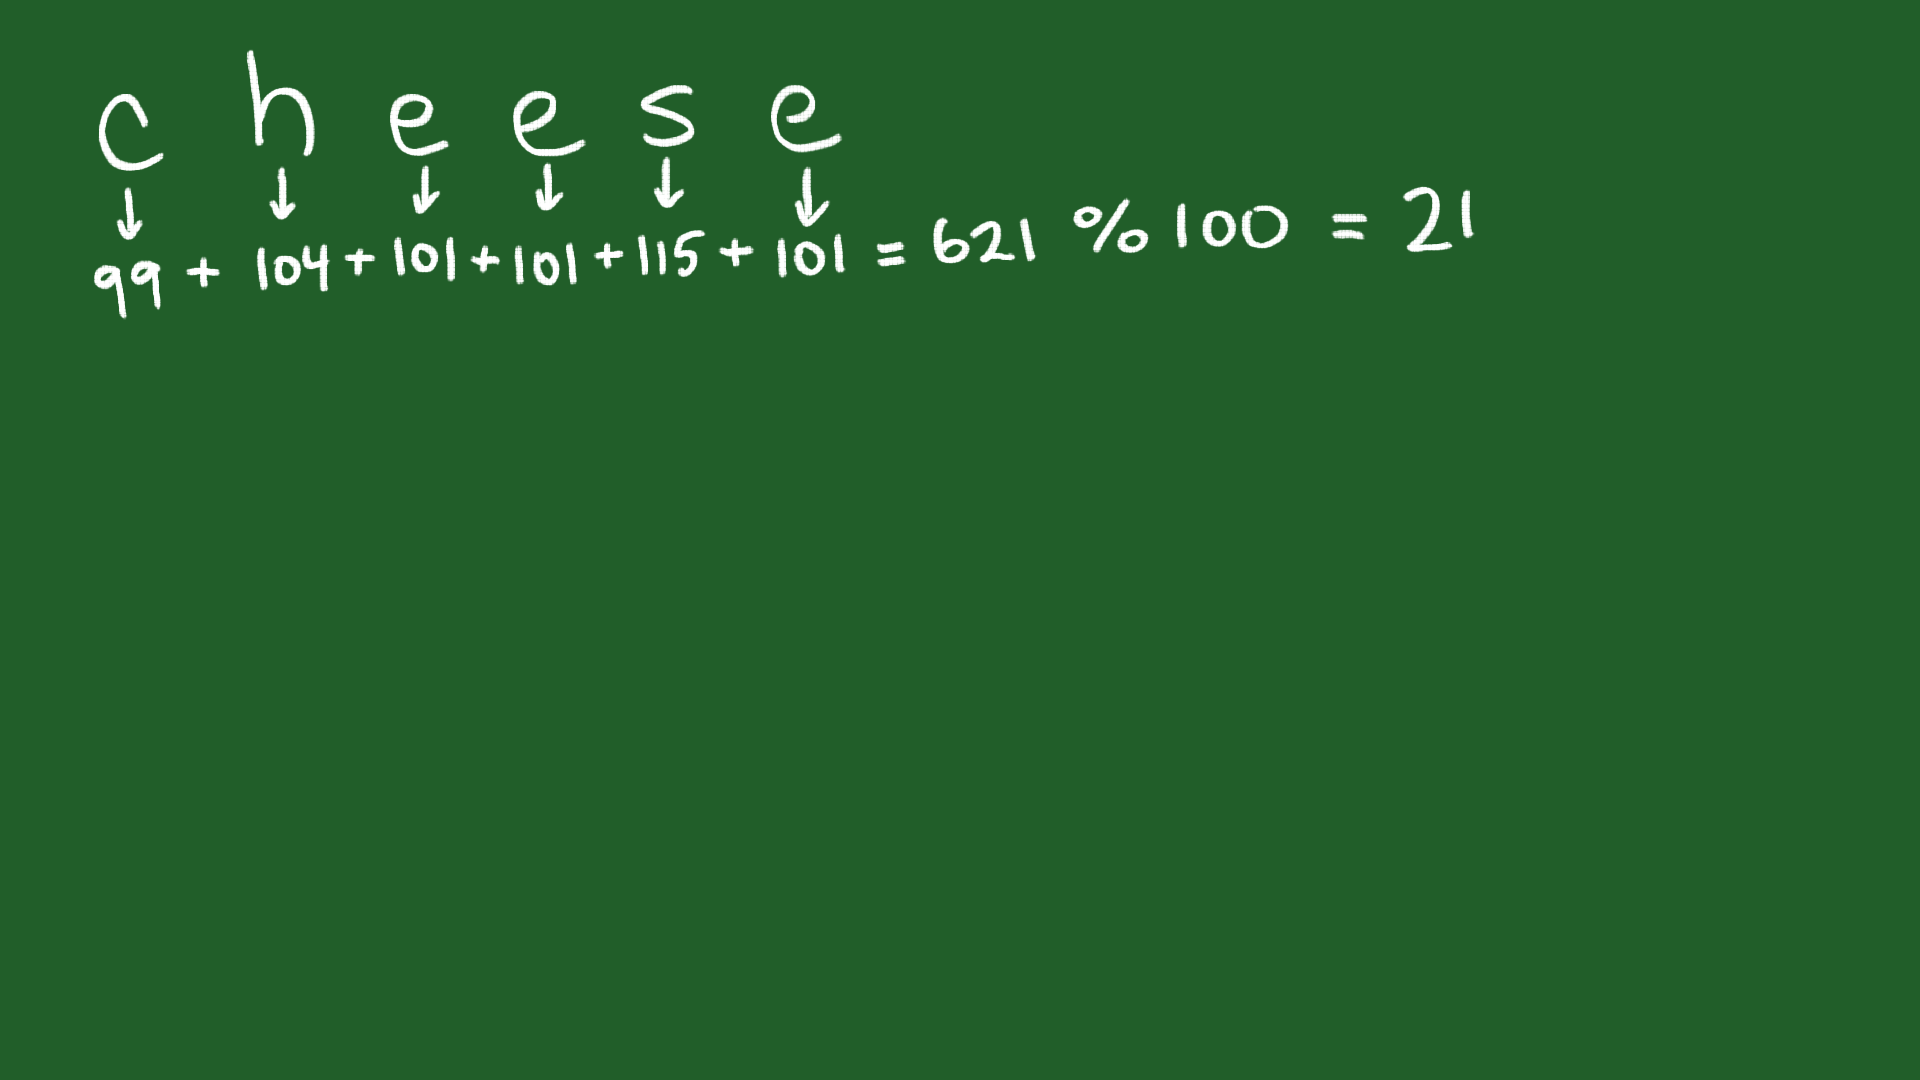 c h e e s e
↓ ↓ ↓ ↓ ↓ ↓
99 + 104 + 101 + 101 + 115 + 101 = 621 % 100 = 21